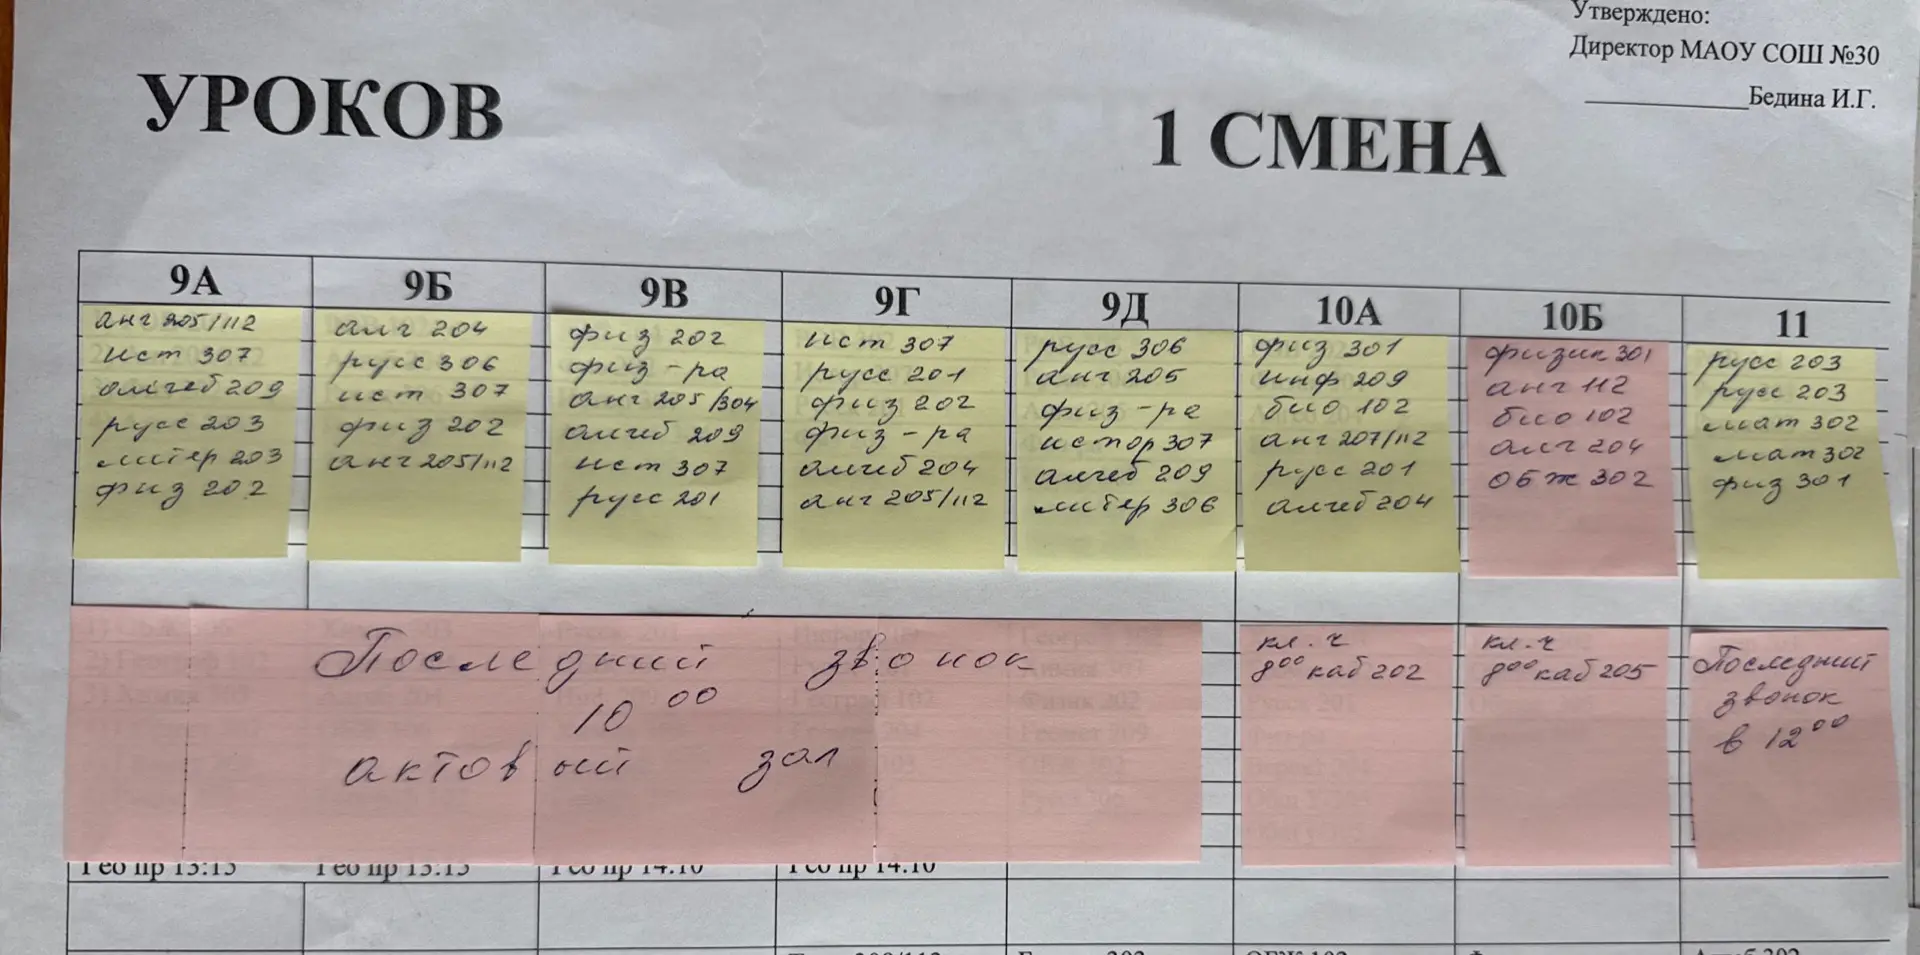 Утверждено:
Директор МАОУ СОШ №30
Бедина И.Г.
УРОКОВ
1 СМЕНА
9А
9Б
9В
9Г
9Д
10А
10Б
11
анг 205/112
ист 307
алгеб 209
русс 203
литер 203
физ 202
алг 204
русс 306
ист 307
физ 202
анг 205/112
физ 202
физ-ра
анг 205/304
алгеб 209
ист 307
русс 201
ист 307
русс 201
физ 202
физ-ра
алгеб 204
анг 205/112
русс 306
анг 205
физ-ра
истор 307
алгеб 209
литер 306
физ 301
инф 209
био 102
анг 207/112
русс 201
алгеб 204
физик 301
анг 112
био 102
алг 204
ОБЖ 302
русс 203
русс 203
мат 302
мат 302
физ 301
Последний звонок
10 00
актовый зал
кл.ч
8 00 каб 202
кл.ч
8 00 каб 205
Последний
звонок
в 12 00
Гео пр 13:15
Гео пр 13:15
Гео пр 14.10
Гео пр 14.10